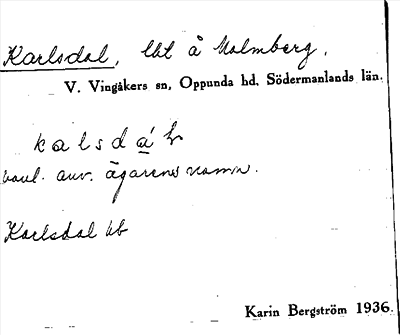 Karlsdal, lht å Malmberg.
V. Vingåkers sn, Oppunda hd, Södermanlands län.
kalsdá
vanl. anv. ägarens namn.
Karlsdal hb
Karin Bergström 1936.